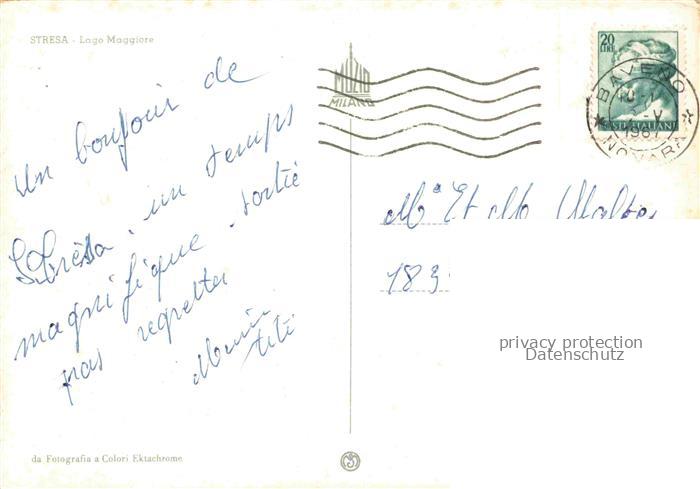 STRESA - Lago Maggiore
Un bonjour de
Stresa, un temps
magnifique sortie
pas regretter
titi
da Fotografia a Colori Ektachrome
MUZIO
MILANO
20
LIRE
POSTE ITALIANE
BAVENO
NOVARA
10
V
1967
Mᵃ Et M
183
privacy protection
Datenschutz